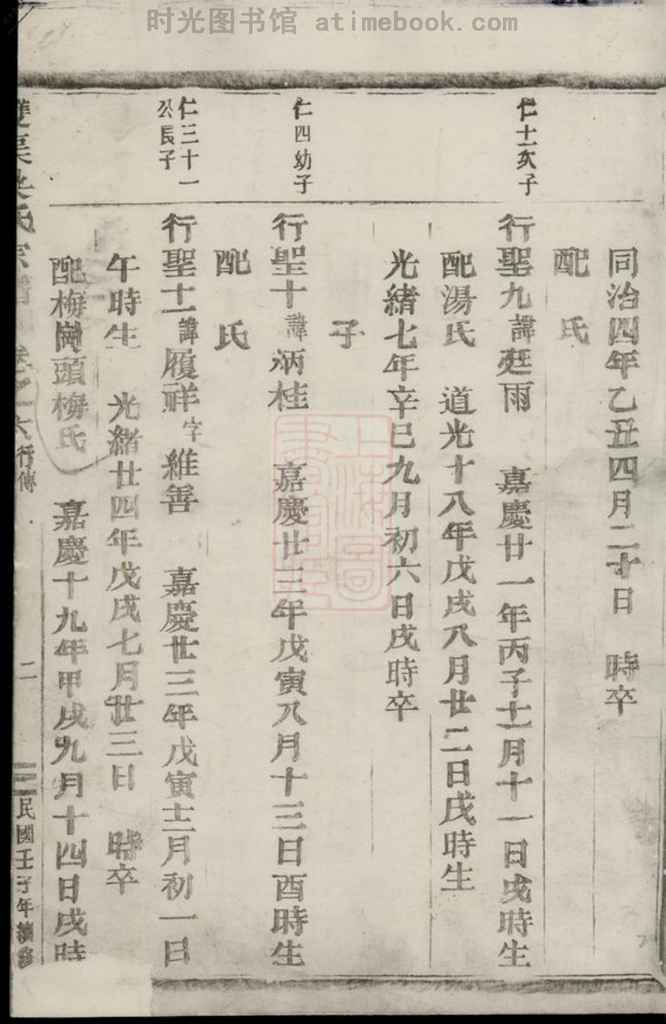 时光图书馆 atimebook.com
同治四年乙丑四月二十日　時卒
配　氏
仁十一次子
行聖九諱廷雨　嘉慶廿一年丙子十一月十一日戌時生
配湯氏　道光十八年戊戌八月廿二日戌時生
光緒七年辛巳九月初六日戌時卒
子
仁四幼子
行聖十諱炳桂　嘉慶廿三年戊寅八月十三日酉時生
配　氏
仁三十一公長子
行聖十一諱履祥字維善　嘉慶廿三年戊寅十二月初一日
午時生　光緒廿四年戊戌七月廿三日　時卒
配梅崗頭梅氏　嘉慶十九年甲戌九月十四日戌時
行傳
二
民國壬子年續修